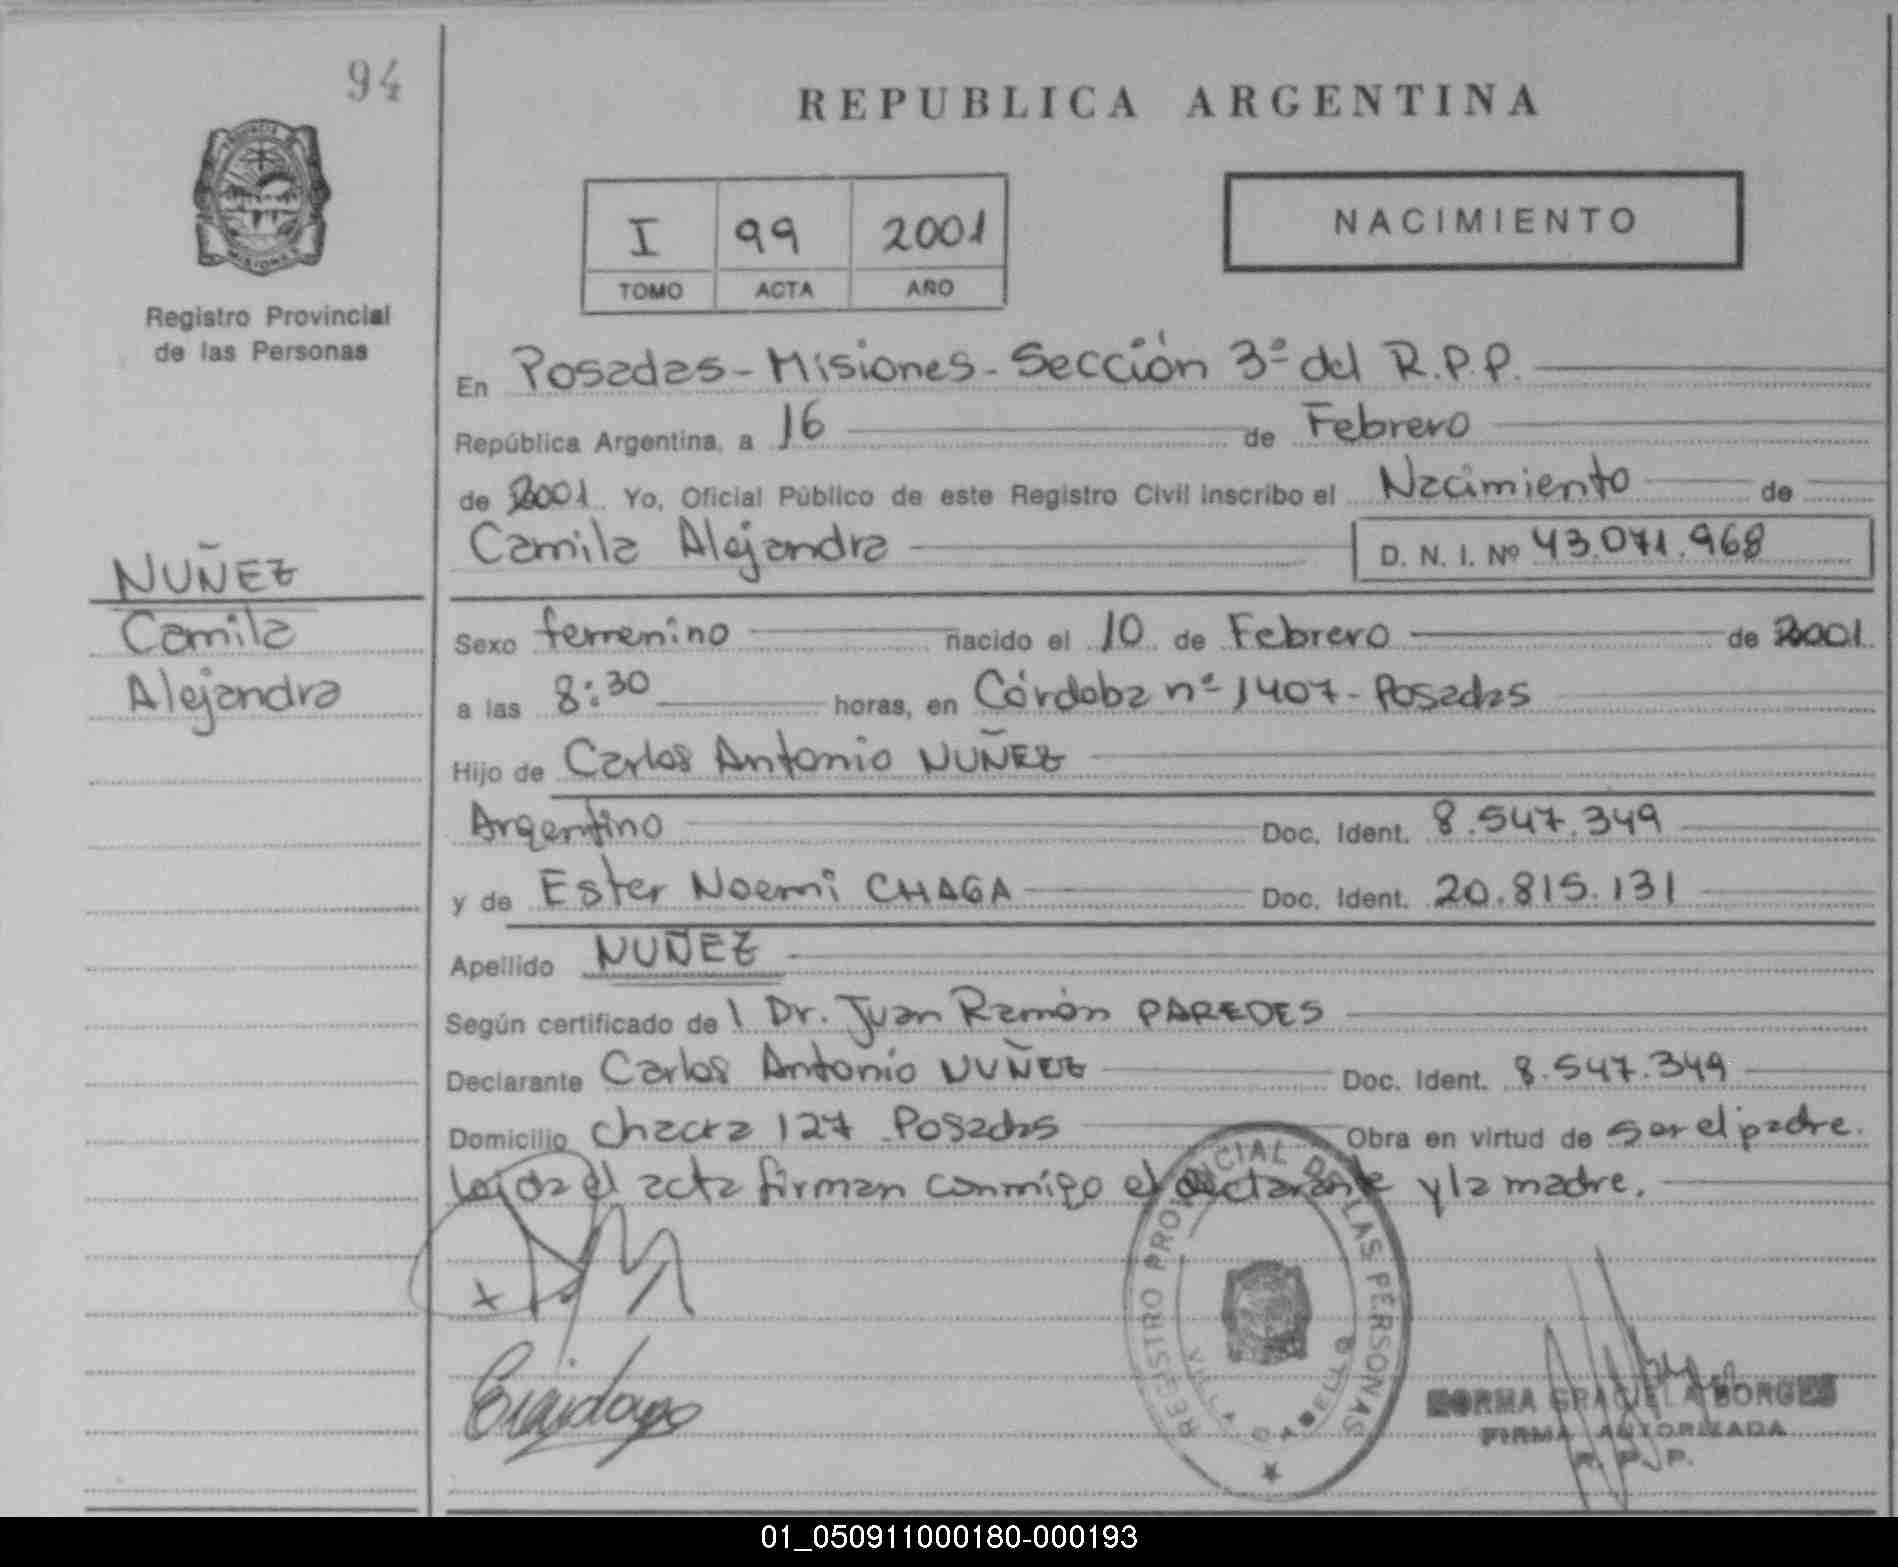 94
REPUBLICA ARGENTINA
MISIONES
I 99 2001
TOMO ACTA AÑO
NACIMIENTO
Registro Provincial
de las Personas
En Posadas - Misiones - Sección 3ª del R.P.P.
República Argentina, a 16 de Febrero
de 2001 Yo, Oficial Público de este Registro Civil inscribo el Nacimiento de
Camila Alejandra D. N. I. Nº 43.071.968
NUÑEZ
Camila
Alejandra
Sexo femenino nacido el 10 de Febrero de 2001
a las 8:30 horas, en Córdoba nº 1407 - Posadas
Hijo de Carlos Antonio NUÑEZ
Argentino Doc. Ident. 8.547.349
y de Ester Noemi CHAGA Doc. Ident. 20.815.131
Apellido NUÑEZ
Según certificado de l Dr. Juan Ramón PAREDES
Declarante Carlos Antonio NUÑEZ Doc. Ident. 8.547.349
Domicilio Chacra 127 Posadas Obra en virtud de ser el padre.
Leida el acta firman conmigo el declarante y la madre.
REGISTRO PROVINCIAL DE LAS PERSONAS
VILLA CABELLO
NORMA GRACIELA BORGES
FIRMA AUTORIZADA
R. P. P.
01_050911000180-000193